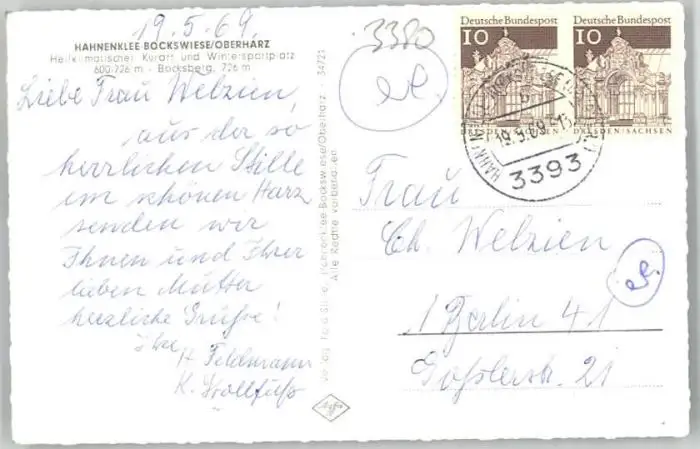 19.5.69.
HAHNENKLEE-BOCKSWIESE/OBERHARZ
Heilklimatischer Kurort und Wintersportplatz
600-726 m - Bocksberg, 726 m
Liebe Frau Welzien,
aus der so
herrlichen Stille
im schönen Harz
senden wir
Ihnen und Ihrer
lieben Mutter
herzliche Grüße!
Ihre
Feldmann
K.
34721
Hahnenklee-Bockswiese/Oberharz
Alle Rechte vorbehalten
Agfa
3380
Deutsche Bundespost
10
DRESDEN/SACHSEN
Deutsche Bundespost
10
DRESDEN/SACHSEN
19.5.69-13
3393
Frau
Ch. Welzien
1 Berlin 41
Goßlerstr. 21